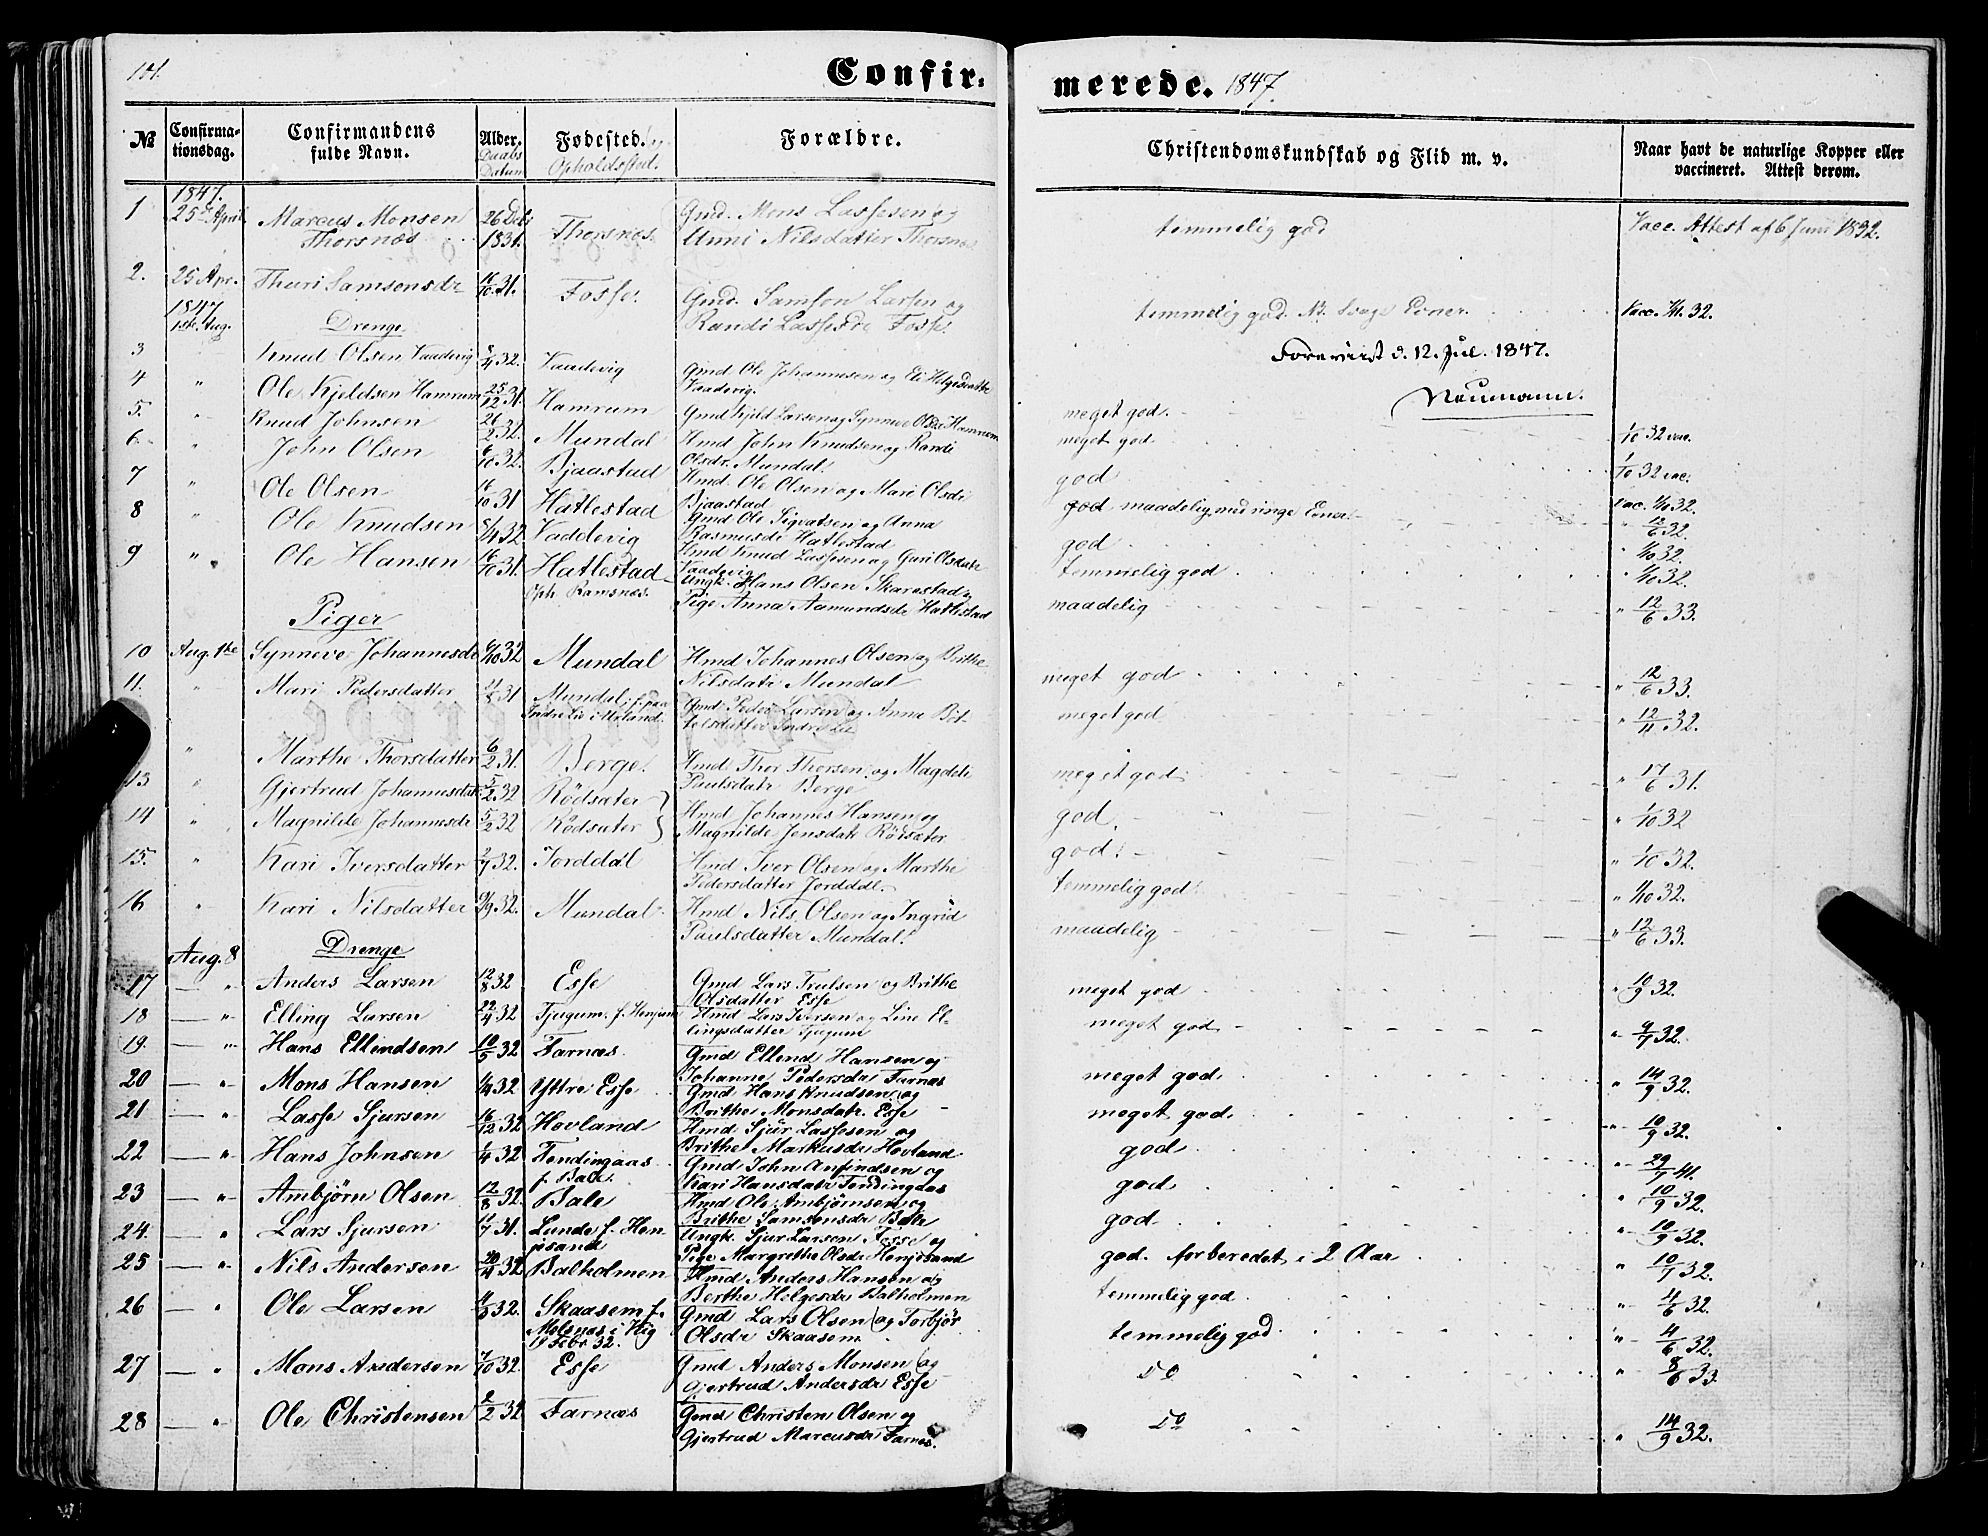 101.
Confir-
merede. 1847.
№
Confirma-
tionsdag.
Confirmandens
fulde Navn.
Alder.
Daabs
Datum
Fødested. og
Opholdssted.
Forældre.
Christendomskundskab og Flid m. v.
Naar havt de naturlige Kopper eller
vaccineret. Attest derom.
1 1847. 25de April Marcus Monsen 26 Dcbr Thorsnæs Gmd. Mons Lassesen og temmelig god Vacc. Attest af 6 Juni 1832.
Thorsnæs 1831. Unni Nilsdatter Thorsnæs
2. 25 Apr. Thuri Samsonsdr 16/10 31. Fosse. Gmd. Samson Larsen og temmelig god. Evner. Vacc. 32.
1847 1ste Aug. Drenge Randi Lassesdr Fosse.
3 " Knud Olsen Vaadevig 32. Vaadevig Gmd Ole Johannesen og Eli Helgesdatter Foreviist d. 12. Jul. 1847.
Vaadevig. Neumann.
4 " Ole Kjeldsen Hamrum 25/12 31. Hamrum Gmd Kjeld Larsen og Synneve Olsdr Hamrum meget god.
5. " Knud Johnsen 26/2 32. Mundal Hmd John Knudsen og Randi meget god 1/10 32 vac.
Olsdr. Mundal.
6 " John Olsen 6/10 32. Bjaastad Hmd. Ole Olsen og Mari Olsdr god 1/10 32 vac.
Bjaastad
7 " Ole Olsen 16/10 31 Hatlestad Gmd Ole Sigvatsen og Anna god maadelig, med ringe Evner. vac. 1/10 32.
Rasmusdr Hatlestad " 12/6 32.
8 " Ole Knudsen 8/4 32 Vaddevig Hmd Knud Lassesen og Guri Olsdatr god " 1/10 32.
Vaadevig
9 " Ole Hansen 16/10 31. Hatlestad Ungk. Hans Olsen Skarestad og temmelig god " 1/10 32.
Oph. Ramsnæs. Pige Anna Aamundsdr Hatlestad maadelig " 12/6 33.
Piger
10 Aug. 1ste Synneve Johannesdr 6/10 32 Mundal Hmd Johannes Olsen og Brithe meget god " 12/6 33.
Nilsdatr Mundal
11. " Mari Pedersdatter 31 Mundal, f. paa Gmd Peder Larsen og Anna Bot- meget god " 12/11 32.
Indre Lie i Urland. telsdatter Indre Lie
" Marthe Thorsdatter 6/2 31. Berge. Hmd Thor Thorsen og Magdeli meget god " 17/6 31.
Paulsdatr Berge
13 " Gjertrud Johannesdatr 5/2 32 Rödsæter god. " 1/10 32
14 " Magnilde Johannesdr 5/2 32 Rødsæter Hmd Johannes Hansen og god. " 1/10 32.
Magnilde Jensdatr Rødsæter
15. " Kari Iversdatter 2/7 32. Jorddal Hmd Iver Olsen og Marthe temmelig god " 1/10 32.
Pedersdatter Jorddal.
16 " Kari Nilsdatter 9/9 32. Mundal. Hmd Nils Olsen og Ingrid maadelig " 12/6 33.
Paulsdatter Mundal.
Aug. 8 Drenge
17 — " Anders Larsen 12/8 32 Esse Gmd Lars Trulsen og Brithe meget god " 10/9 32.
Olsdatter Esse
18 — " Elling Larsen 22/4 32 Tjugum. f. Henjum Hmd Lars Iversen og Line El- meget god " 9/7 32.
lingsdatter Tjugum
19. — " Hans Ellendsen 10/5 32 Farnæs. Gmd Ellend Hansen og meget god. " 14/9 32.
Johanne Pedersdr Farnæs
20 — " Mons Hansen 1/4 32 Yttre Esse Gmd Hans Knudsen og meget god. " 10/9 32.
Brithe Monsdatr. Esse
21 — " Lasse Sjursen 16/12 32 Hovland Hmd Sjur Lassesen og god " 29/7 41.
Brithe Markusdr Hovland
22 — " Hans Johnsen 1/4 32 Tendingaas Gmd John Anfindsen og god " 10/9 32.
f. Bale. Kari Hansdatr Tendingaas
23 — " Ambjørn Olsen 12/8 32. Bale Hmd Ole Ambjørnsen og god " 10/9 32.
Brithe Samsonsdr Bale
24. — " Lars Sjursen 11/7 31. Lunde f. Hen- Ungk. Sjur Larsen Fosse og god. forberedet i 2 Aar " 10/7 32.
jesand Pige Margrethe Olsdr Henjesand
25 — " Nils Andersen 20/4 32 Balholmen Hmd Anders Hansen og temmelig god " 4/6 32.
Berthe Helgesdr Balholmen
26 — " Ole Larsen 4/3 32. Skaasem f. Gmd Lars Olsen og Torbjør temmelig god " 4/6 32.
Melsnæs i Vig Olsdr Skaasem
19 Febr 32.
27 — " Mons Andersen 7/10 32. Esse Gmd Anders Monsen og Do " 8/6 33
Gjertrud Andersdr Esse
28 — " Ole Christensen 2/2 32 Farnæs Gmd Christen Olsen og Do " 14/9 32.
Gjertrud Marcusdr Farnæs.